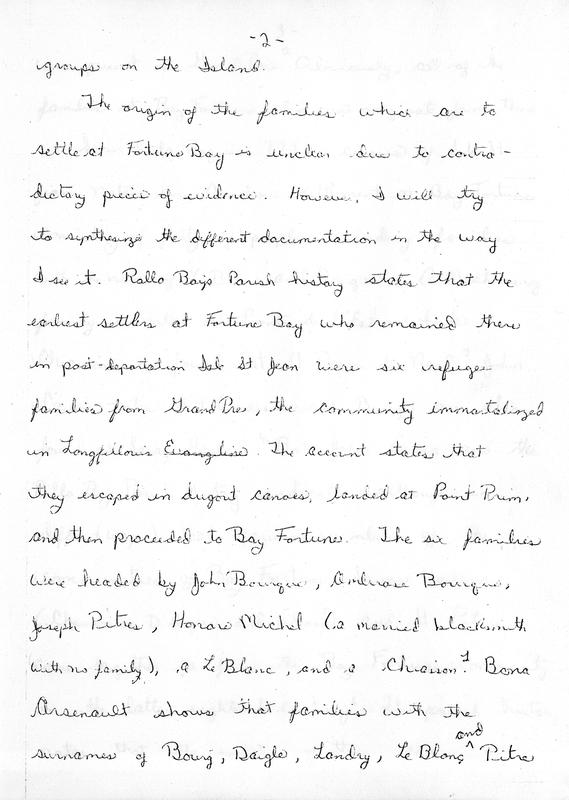 -2-
groups on the Island.
The origin of the families which are to
settle at Fortune Bay is unclear due to contra-
dictory pieces of evidence. However, I will try
to synthesize the different documentation in the way
I see it. Rollo Bay's Parish history states that the
earliest settlers at Fortune Bay who remained there
in post-deportation Isle St Jean were six refugee
families from Grand Pre, the community immortalized
in Longfellow's Evangeline. The account states that
they escaped in dugout canoes, landed at Point Prim,
and then proceeded to Bay Fortune. The six families
were headed by John Bourque, Ambrose Bourque,
Joseph Pitres, Honore Michel (a married blacksmith
with no family), a Le Blanc, and a Chiasson.1 Bona
Arsenault shows that families with the
surnames of Bourg, Daigle, Landry, Le Blanc and Pitre